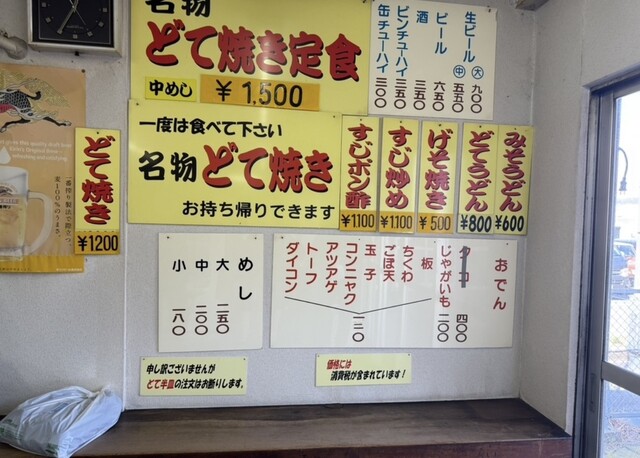 名物
どて焼き定食
中めし
¥1.500
生ビール ㊅ 九〇〇
㊥ 五五〇
ビール 六五〇
酒 三五〇
ビンチューハイ 三五〇
缶チューハイ 三〇〇
一度は食べて下さい
名物 どて焼き
お持ち帰りできます
みそうどん
¥600
どてうどん
¥800
げそ焼き
¥500
すじ炒め
¥1100
すじポン酢
¥1.100
どて焼き
¥1200
おでん
タコ 四〇〇
じゃがいも 二〇〇
板
ちくわ
ごぼ天
玉子
コンニャク
アツアゲ
トーフ
ダイコン
一三〇
めし
大 二五〇
中 二〇〇
小 一八〇
申し訳ございませんが
どて半皿の注文はお断りします。
価格には
消費税が含まれています!
一番搾り製法で際立つ、
麦100%のうまさ。